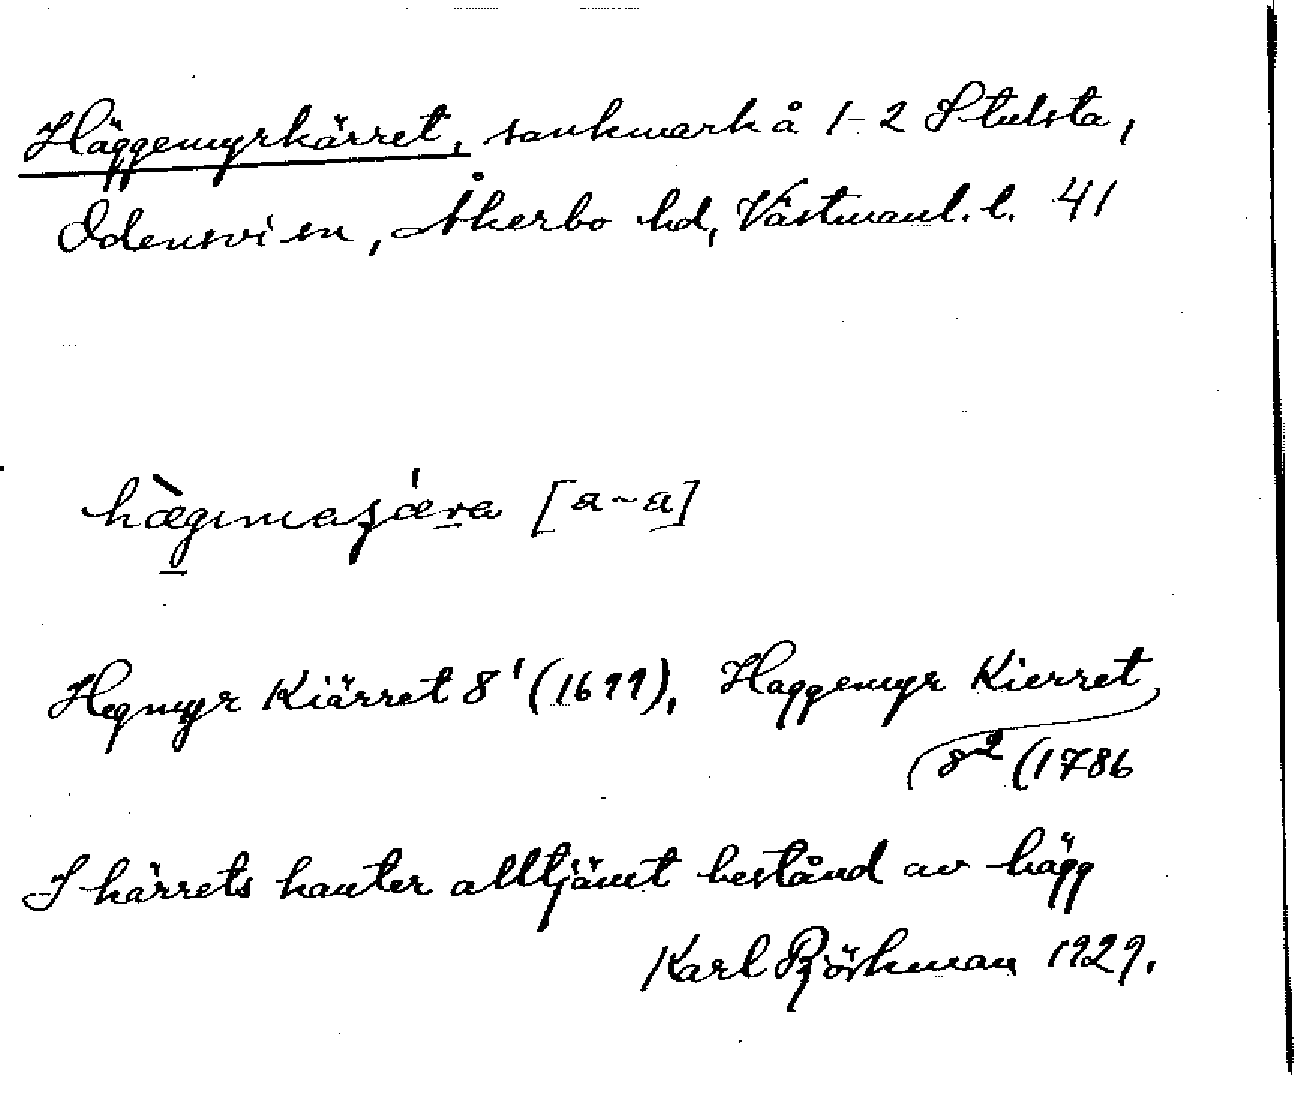 Häggemyrkärret, sankmark å 1-2 Stulsta,
Odensvi sn, Åkerbo hd, Västmanl. l. 41
[a~a]
Hegmyr Kiärret 8¹ (1699), Haggemyr Kierret
8² (1786
I kärrets kanter alltjämt bestånd av hägg
Karl Björkman 1929.